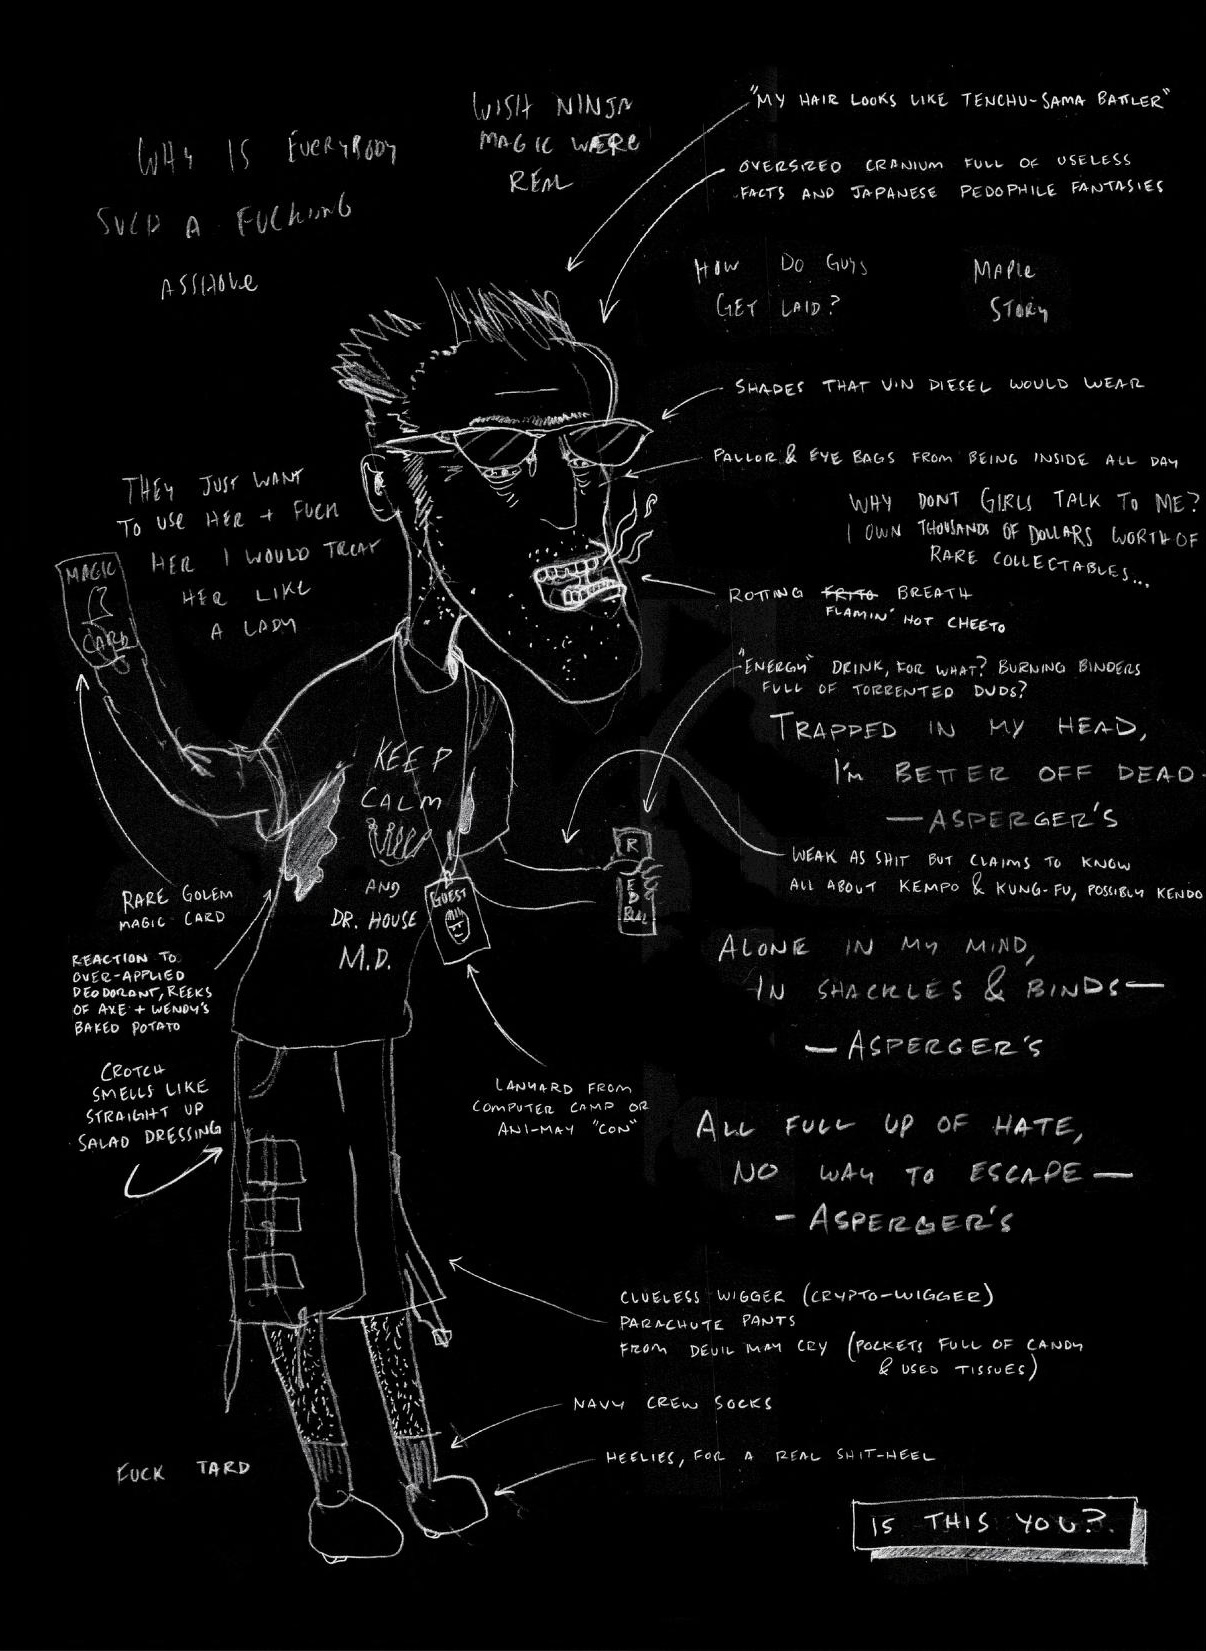 WISH NINJA
MAGIC WERE
REAL
"MY HAIR LOOKS LIKE TENCHU-SAMA BATTLER"
WHY IS EVERYBODY
SUCH A FUCKING
ASSHOLE
OVERSIZED CRANIUM FULL OF USELESS
FACTS AND JAPANESE PEDOPHILE FANTASIES
HOW DO GUYS
GET LAID?
MAPLE
STORY
SHADES THAT VIN DIESEL WOULD WEAR
PALLOR & EYE BAGS FROM BEING INSIDE ALL DAY
THEY JUST WANT
TO USE HER + FUCK
HER I WOULD TREAT
HER LIKE
A LADY
WHY DONT GIRLS TALK TO ME?
I OWN THOUSANDS OF DOLLARS WORTH OF
RARE COLLECTABLES...
MAGIC
CARD
ROTTING FRITO BREATH
FLAMIN' HOT CHEETO
"ENERGY" DRINK, FOR WHAT? BURNING BINDERS
FULL OF TORRENTED DVDS?
TRAPPED IN MY HEAD,
I'M BETTER OFF DEAD-
—ASPERGER'S
KEEP
CALM
AND
DR. HOUSE
M.D.
GUEST
R
E
D
BULL
WEAK AS SHIT BUT CLAIMS TO KNOW
ALL ABOUT KEMPO & KUNG-FU, POSSIBLY KENDO
RARE GOLEM
MAGIC CARD
REACTION TO
OVER-APPLIED
DEODORANT, REEKS
OF AXE + WENDY'S
BAKED POTATO
ALONE IN MY MIND,
IN SHACKLES & BINDS—
—ASPERGER'S
CROTCH
SMELLS LIKE
STRAIGHT UP
SALAD DRESSING
LANYARD FROM
COMPUTER CAMP OR
ANI-MAY "CON"
ALL FULL UP OF HATE,
NO WAY TO ESCAPE—
-ASPERGER'S
CLUELESS WIGGER (CRYPTO-WIGGER)
PARACHUTE PANTS
FROM DEVIL MAY CRY (POCKETS FULL OF CANDY
& USED TISSUES)
NAVY CREW SOCKS
HEELIES, FOR A REAL SHIT-HEEL
FUCK TARD
IS THIS YOU?